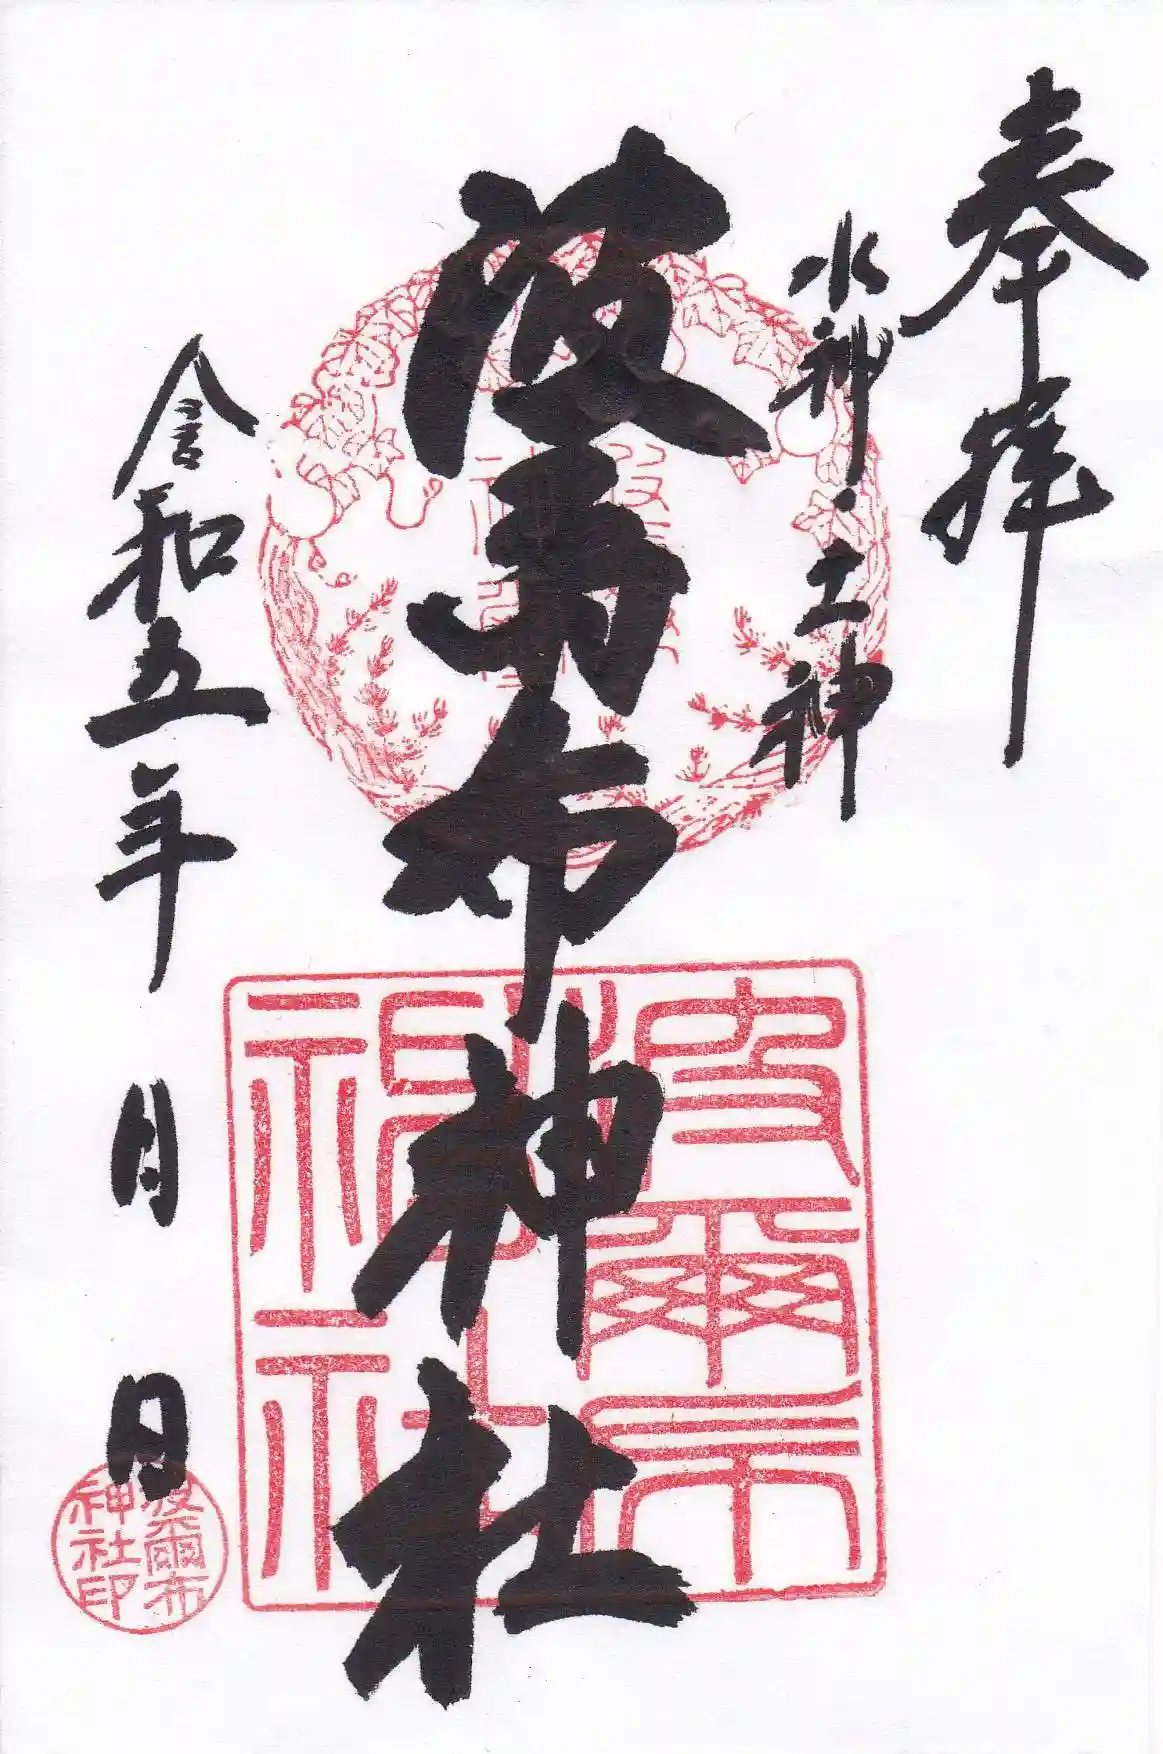 奉拝
水神・土神
波爾布神社
令和五年 月 日
波爾布
神社印